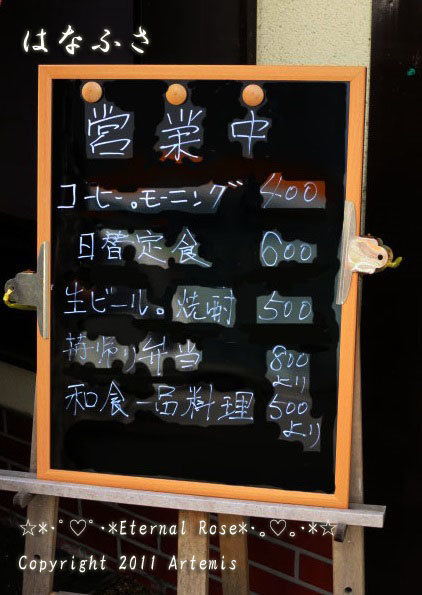 はなふさ
営業中
コーヒー。モーニング 400
日替定食 600
生ビール。焼酎 500
持帰り弁当 800より
和食一品料理 500より
☆*・゜♡゜・*Eternal Rose*・。♡。・*☆
Copyright 2011 Artemis